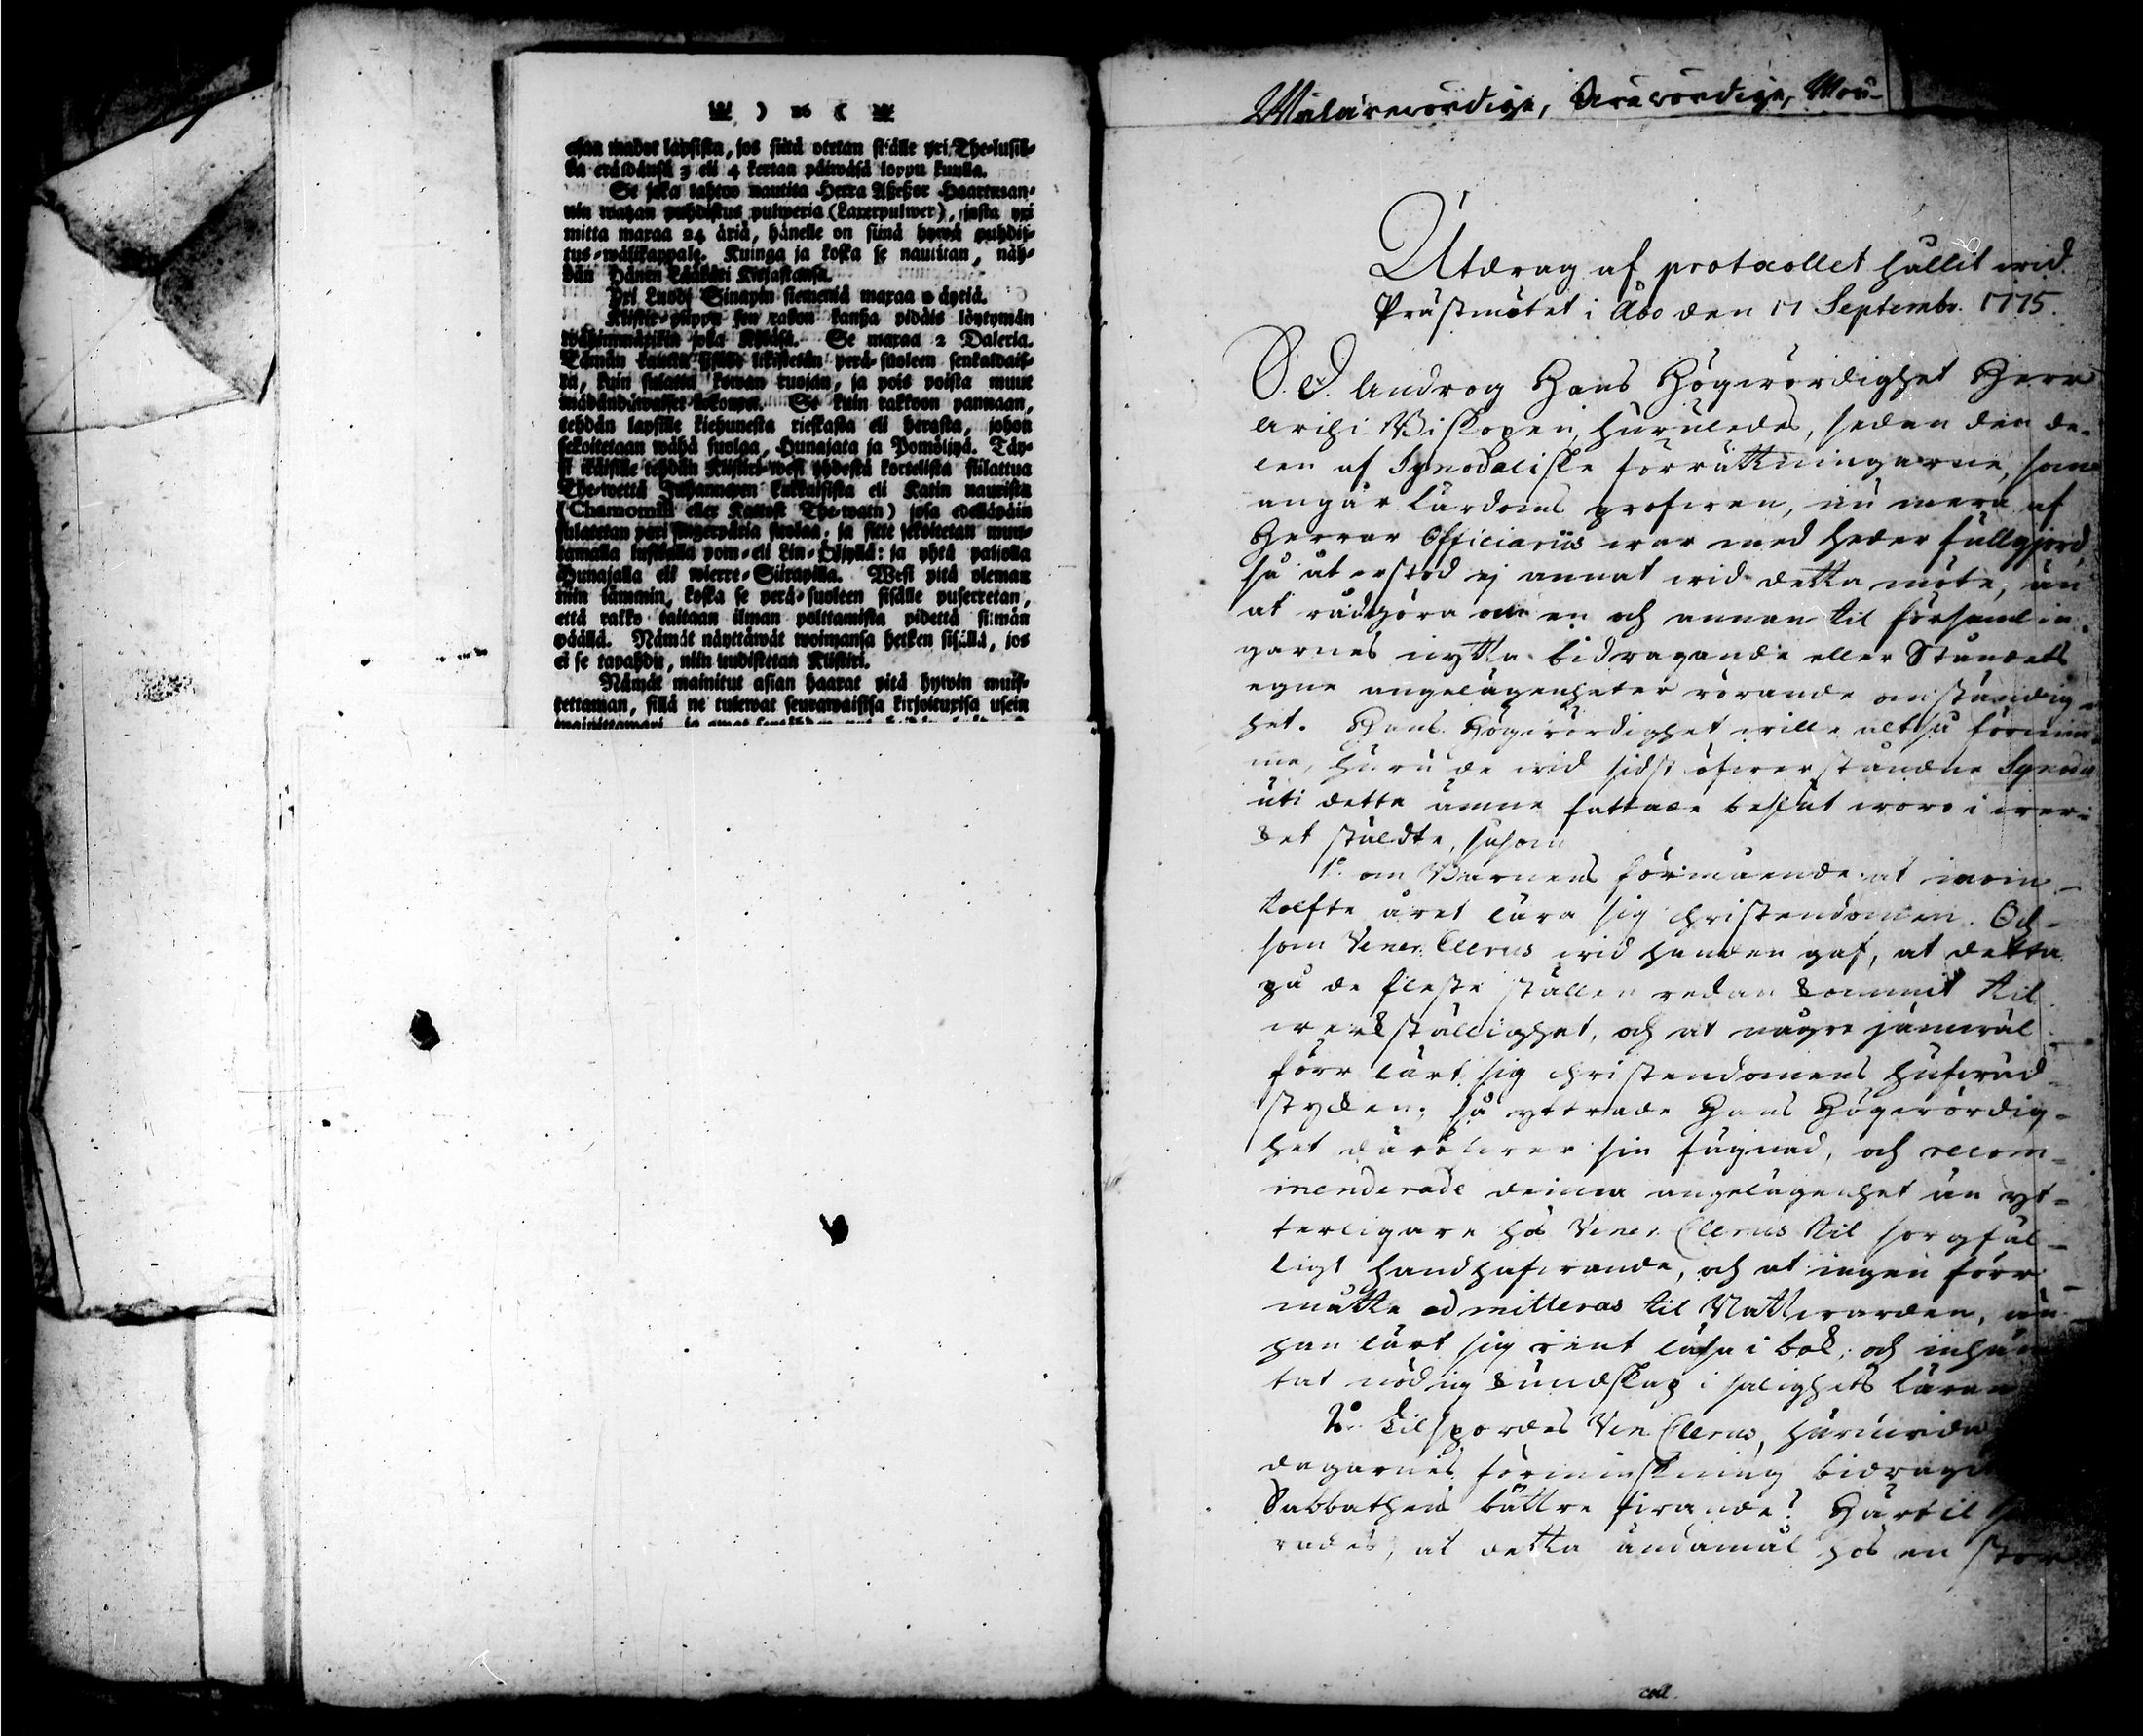 ) 26 (
madot lapsista, jos siitä otetan sisälle yxi The-lusik-
ka erällänsä 3 eli 4 kertaa päiwäsä loppu kuulla.
Se joka tahtoo nautita Herra Aßeßor Haartman-
nin watzan puhdistus pulweria (Laxerpulwer), josta yxi
mitta maxaa 24 äriä, hänelle on siinä hywä puhdis-
tus-wälikappale. Kuinga ja koska se nautitan, näh-
dän Hänen Lääkäri Kirjastansa.
Yxi Luodi Sinapin siemeniä maxaa äyriä.
Klistir-piippu sen rakon kanßa pidäis löytymän
wähimmäxikin joka Kyläsä. Se maxaa 2 Daleria.
Tämän kautta sisälle likistetän perä-suoleen senkaldais-
ta, kuin sulatta kowan ruojan, ja pois poista muut
mädändäwäiset kokouxet. Se kuin rakkoon pannaan,
tehdän lapsille kiehunesta rieskasta eli herasta, johon
sekoitetaan wähä suolaa, Hunajata ja Pomöljyä. Täy-
si ikäisille tehdän Klistiri-wesi yhdestä kortelista siilattua
The-wettä Juhannexen kukkaisista eli Katin naurista
(Chamomill eller Kattost The-watn) josa edelläpäin
sulatetan pari fingerpäria suolaa, ja sitte sekoitetan muu-
tamalla lusikalla pom- eli Lin-Öljyllä: ja yhtä paljolla
Hunajalla eli wierre-Siirapilla. Wesi pitä oleman
niin lämmin, koska se perä-suoleen sisälle puserretan,
että rakko taitaan ilman polttamista pidettä silmän
päällä. Nämät näyttäwät woimansa hetken sisällä, jos
ei se tapahdu, niin uudistetan Klistiri.
Nämät mainitut asian haarat pitä hywin muis-
tettaman, sillä ne tulewat seurawaisisa kirjoituxisa usein
Wälärewördige, Ärewördige, Wäl-
Utdrag af protocollet hållit wid
Prästmötet i Åbo den 17 Septembr. 1775.
S. D. Androg Hans Högwördighet Herr
Archi Biskopen, huruledes, sedan den de-
len af Synodaliske förrättningarne, som
angår Lärdoms profwen, nu mera af
Herrar Officiariis war med heder fullgjord
så återstod ej annat wid detta möte, än
at rådgöra om en och annan til församlin-
garnes nytta bidragande eller Ståndets
egne angelägenheter rörande omständig-
het. Hans Högwördighet wille altså förnim-
ma, huru de wid sidst öfwerståndne Synodo
uti detta ämne fattade beslut woro i wer-
ket stäldte, såsom
1:o om Barnens förmående at inom
tolfte året lära sig christendomen. Och
som Vener. Clerus wid handen gaf, at detta
på de fleste ställen redan kommit til
werkställighet, och at någre jämwäl
förr lärt sig christendomens hufwud-
stycken; så yttrade Hans Högwördig-
het däröfwer sin fägnad, och recom-
menderade denna angelägenhet än yt-
terligare hos Vener. Clerus til sorgfäl-
ligt handhafwande, och at ingen förr
måtte admitteras til Nattwarden, än
han lärt sig rent läsa i bok, och inhäm
tat nödig kundskap i salighets läran
2:o Tilspordes Ven. Clerus, huruwida
dagarnes förminskning bidragit
Sabbathens bättre firande? Härtil
rades, at detta ändamål hos en stor
coll.